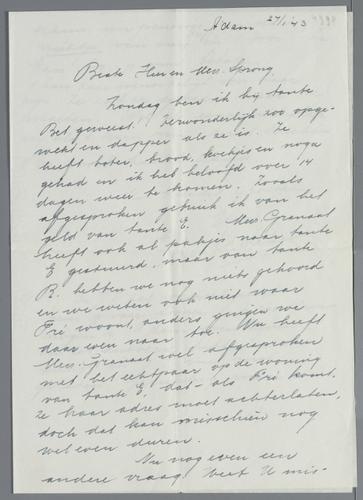 A'dam 27/1 '43
Beste Heer en Mevr. Sprong.
Zondag ben ik bij tante
Bet geweest. Verwonderlijk zoo opge-
wekt en dapper als ze is. Ze
heeft boter, brood, koekjes en noga
gehad en ik heb beloofd over 14
dagen weer te komen. Zooals
afgesproken gebruik ik van het
geld van tante E. Mevr. Granaat
heeft ook al pakjes naar tante
E gestuurd, maar van tante
R. hebben we nog niets gehoord
en we weten ook niet waar
Fré woont, anders gingen we
daar even naar toe. Nu heeft
Mevr. Granaat wel afgesproken
met het echtpaar op de woning
van tante E, dat - als Fré komt,
ze haar adres moet achterlaten,
doch dat kan misschien nog
wel even duren.
Nu nog even een
andere vraag. Weet U mis-